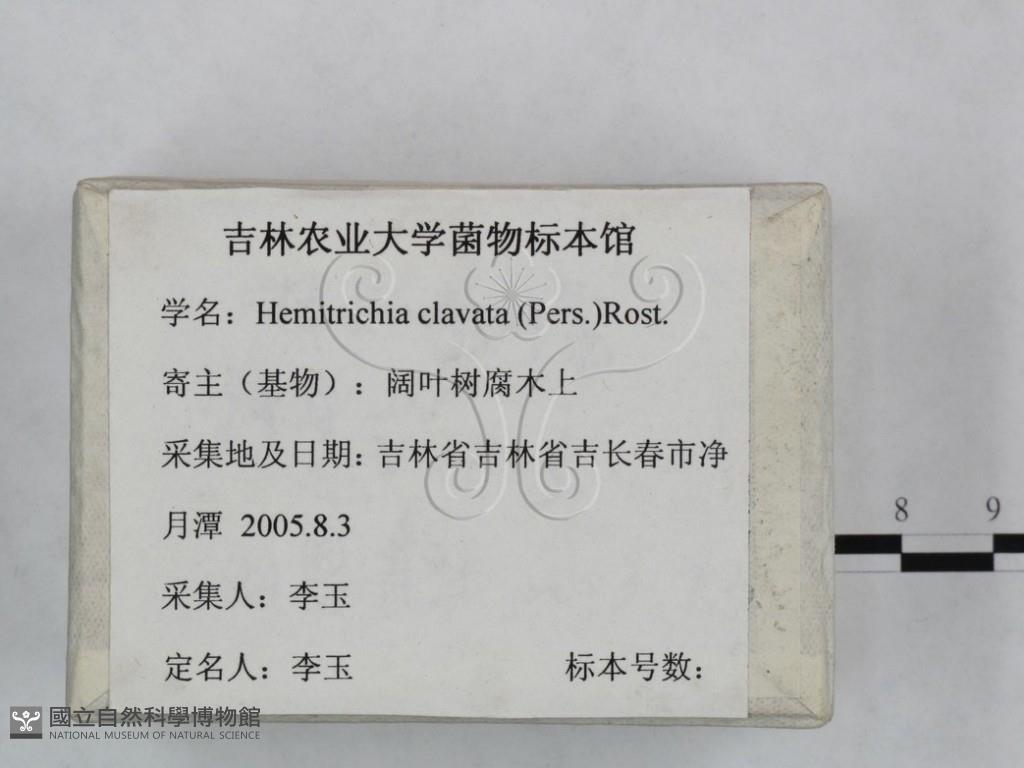 吉林农业大学菌物标本馆
学名：Hemitrichia clavata (Pers.)Rost.
寄主（基物）：阔叶树腐木上
采集地及日期：吉林省吉林省吉长春市净
月潭 2005.8.3
采集人：李玉
定名人：李玉 标本号数：
8 9
國立自然科學博物館
NATIONAL MUSEUM OF NATURAL SCIENCE